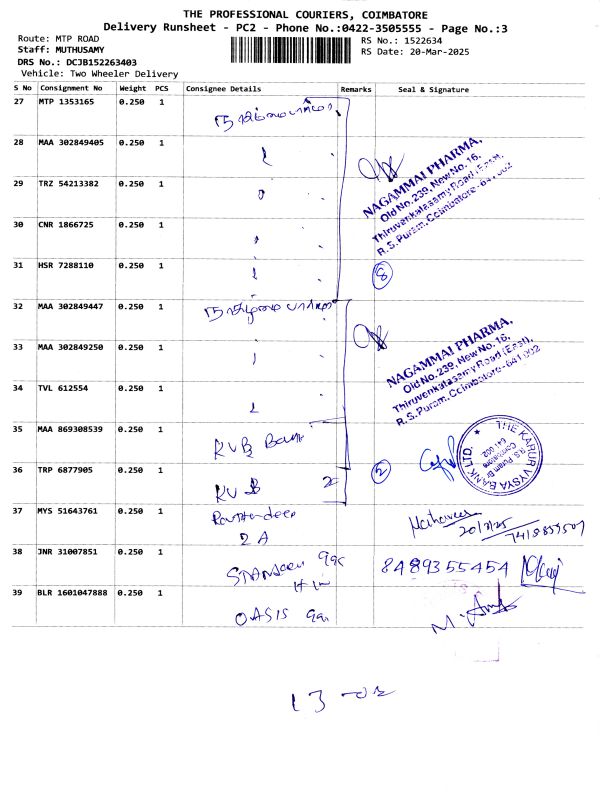 THE PROFESSIONAL COURIERS, COIMBATORE
Delivery Runsheet - PC2 - Phone No.:0422-3505555 - Page No.:3
Route: MTP ROAD
RS No.: 1522634
Staff: MUTHUSAMY
RS Date: 20-Mar-2025
DRS No.: DCJB152263403
Vehicle: Two Wheeler Delivery
S No Consignment No Weight PCS Consignee Details Remarks Seal & Signature
27 MTP 1353165 0.250 1
28 MAA 302849405 0.250 1
NAGAMMAI PHARMA,
Old No. 239, New No. 16,
Thiruvenkatasamy Road (East),
R.S. Puram, Coimbatore - 641 002
29 TRZ 54213382 0.250 1
30 CNR 1866725 0.250 1
31 HSR 7288110 0.250 1
8
32 MAA 302849447 0.250 1
33 MAA 302849250 0.250 1
NAGAMMAI PHARMA,
Old No. 239, New No. 16,
Thiruvenkatasamy Road (East),
R.S. Puram, Coimbatore - 641 002
34 TVL 612554 0.250 1
35 MAA 869308539 0.250 1 KVB Bank
THE KARUR VYSYA BANK LTD.
R.S. Puram Br
Coimbatore
641 002
36 TRP 6877905 0.250 1 KVB
2
37 MYS 51643761 0.250 1
2 A
20/3/25
38 JNR 31007851 0.250 1
8489355454
39 BLR 1601047888 0.250 1 OASIS
13